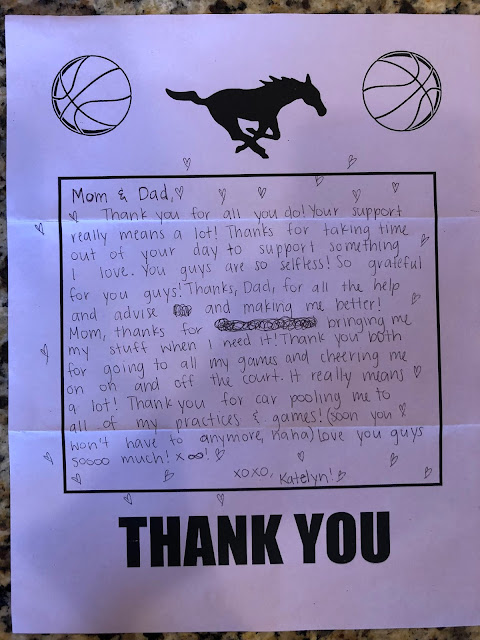 Mom & Dad,♡
Thank you for all you do! Your support
really means a lot! Thanks for taking time
out of your day to support something
I love. You guys are so selfless! So grateful
for you guys! Thanks, Dad, for all the help
and advise and making me better!
Mom, thanks for bringing me
my stuff when I need it! Thank you both
for going to all my games and cheering me
on on and off the court. It really means
a lot! Thank you for car pooling me to
all of my practices & games! (soon you
won't have to anymore, haha) Love you guys
soooo much! x ∞!
xoxo, Katelyn!
THANK YOU